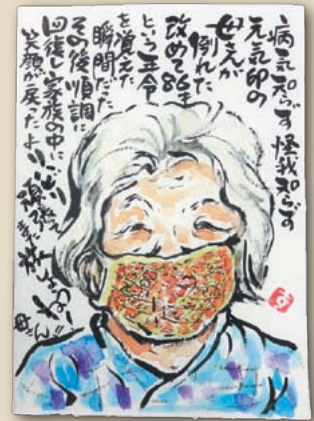 病気知らず怪我知らず
元気印の
母さんが
倒れた
改めて86才
という年令
を覚えた
瞬間だった
その後順調に
回復し家族の中に
笑顔が戻ったよ
リハビリ
頑張って
母さん!!